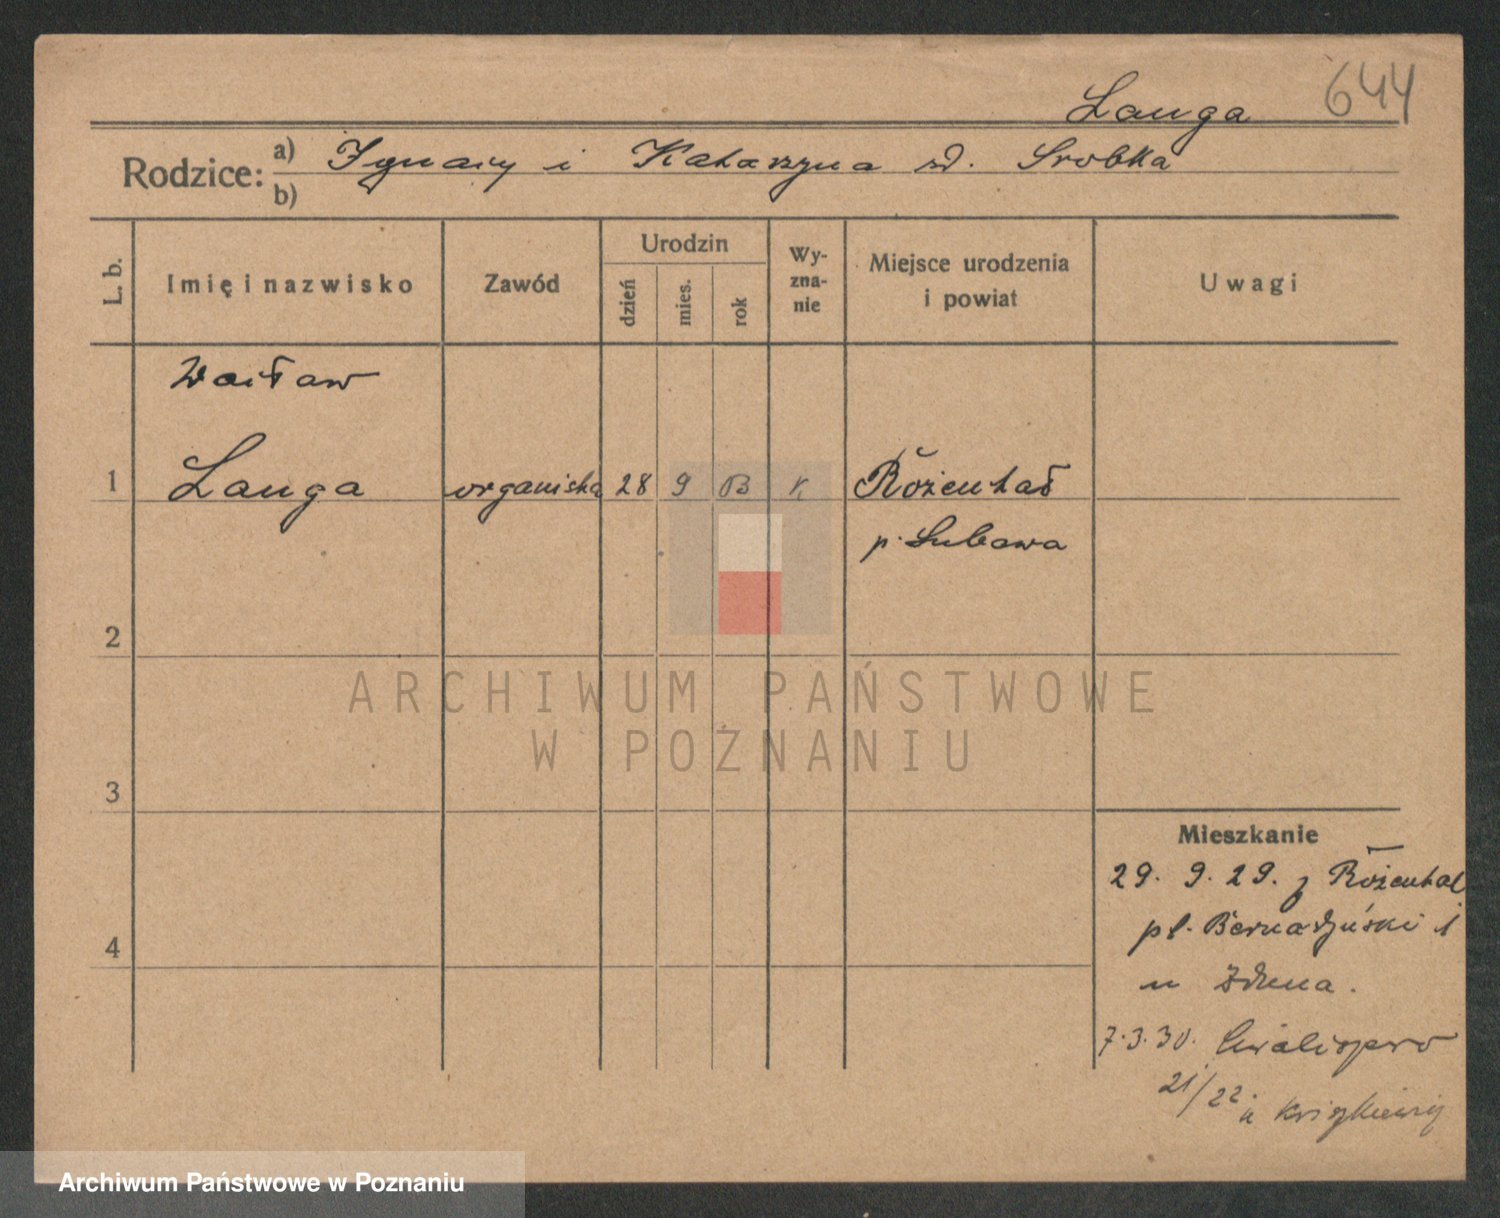 Langa 644
Rodzice: a) Ignacy i Katarzyna zd. Srobka
b)
L. b. Imię i nazwisko Zawód Urodzin dzień mies. rok Wy-zna-nie Miejsce urodzenia i powiat Uwagi
Wacław
1 Langa organista 28 9 K Rożental
p. Lubawa
2
ARCHIWUM PAŃSTWOWE
W POZNANIU
3
Mieszkanie
29. 9. 29. z Rożental
4 pl. Bernadyński 1
u
7.3.30.
21/22. u
Archiwum Państwowe w Poznaniu